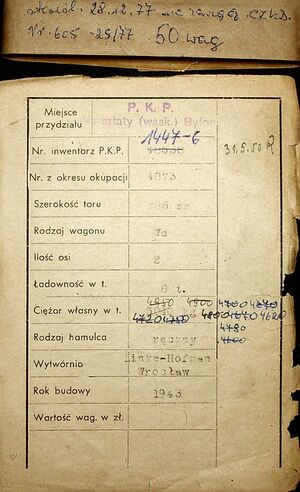 28.12.77
Nr. 605-25/77 50 wag
P. K. P.
Miejsce przydziału Warsztaty (wąsk.) Bytom
1447-6
Nr. inwentarz P.K.P. 31.5.50 R
Nr. z okresu okupacji 4873
Szerokość toru 785 mm
Rodzaj wagonu Wd
Ilość osi 2
Ładowność w t. 8 t.
Ciężar własny w t. 4800 4700 4670
4720 4800 4670 4620
4780
4600
Rodzaj hamulca ręczny
Wytwórnio Linke-Hofman
Wrocław
Rok budowy 1943
Wartość wag. w zł.